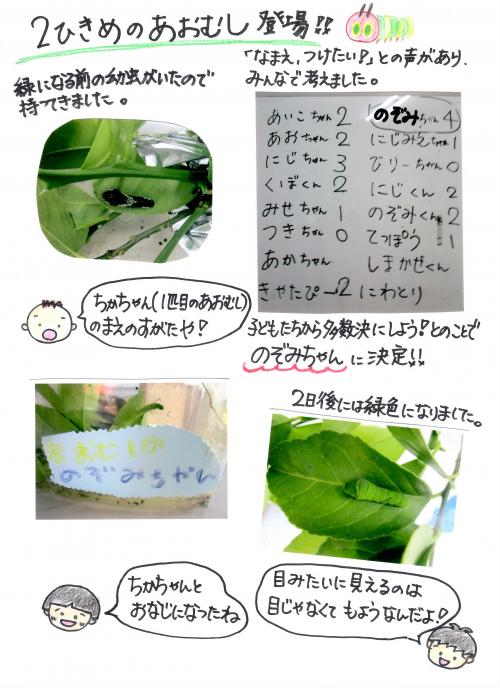 2ひきめのあおむし登場!!
緑になる前の幼虫がいたので
持ってきました。
「なまえ、つけたい?」との声があり、
みんなで考えました。
あいこちゃん 2
あおちゃん 2
にじちゃん 3
くぼくん 2
みせちゃん 1
つきちゃん 0
あかちゃん
きゃたぴー 2
のぞみちゃん 4
にじみえちゃん 1
びりーちゃん 0
にじくん 2
のぞみくん 2
てっぽう 1
しまかぜくん
にわとり
ちかちゃん(1匹目のあおむし)
のまえのすがたや!
子どもたちから多数決にしよう!とのことで
のぞみちゃんに決定!!
あおむしの
のぞみちゃん
2日後には緑色になりました。
ちかちゃんと
おなじになったね
目みたいに見えるのは
目じゃなくてもようなんだよ!